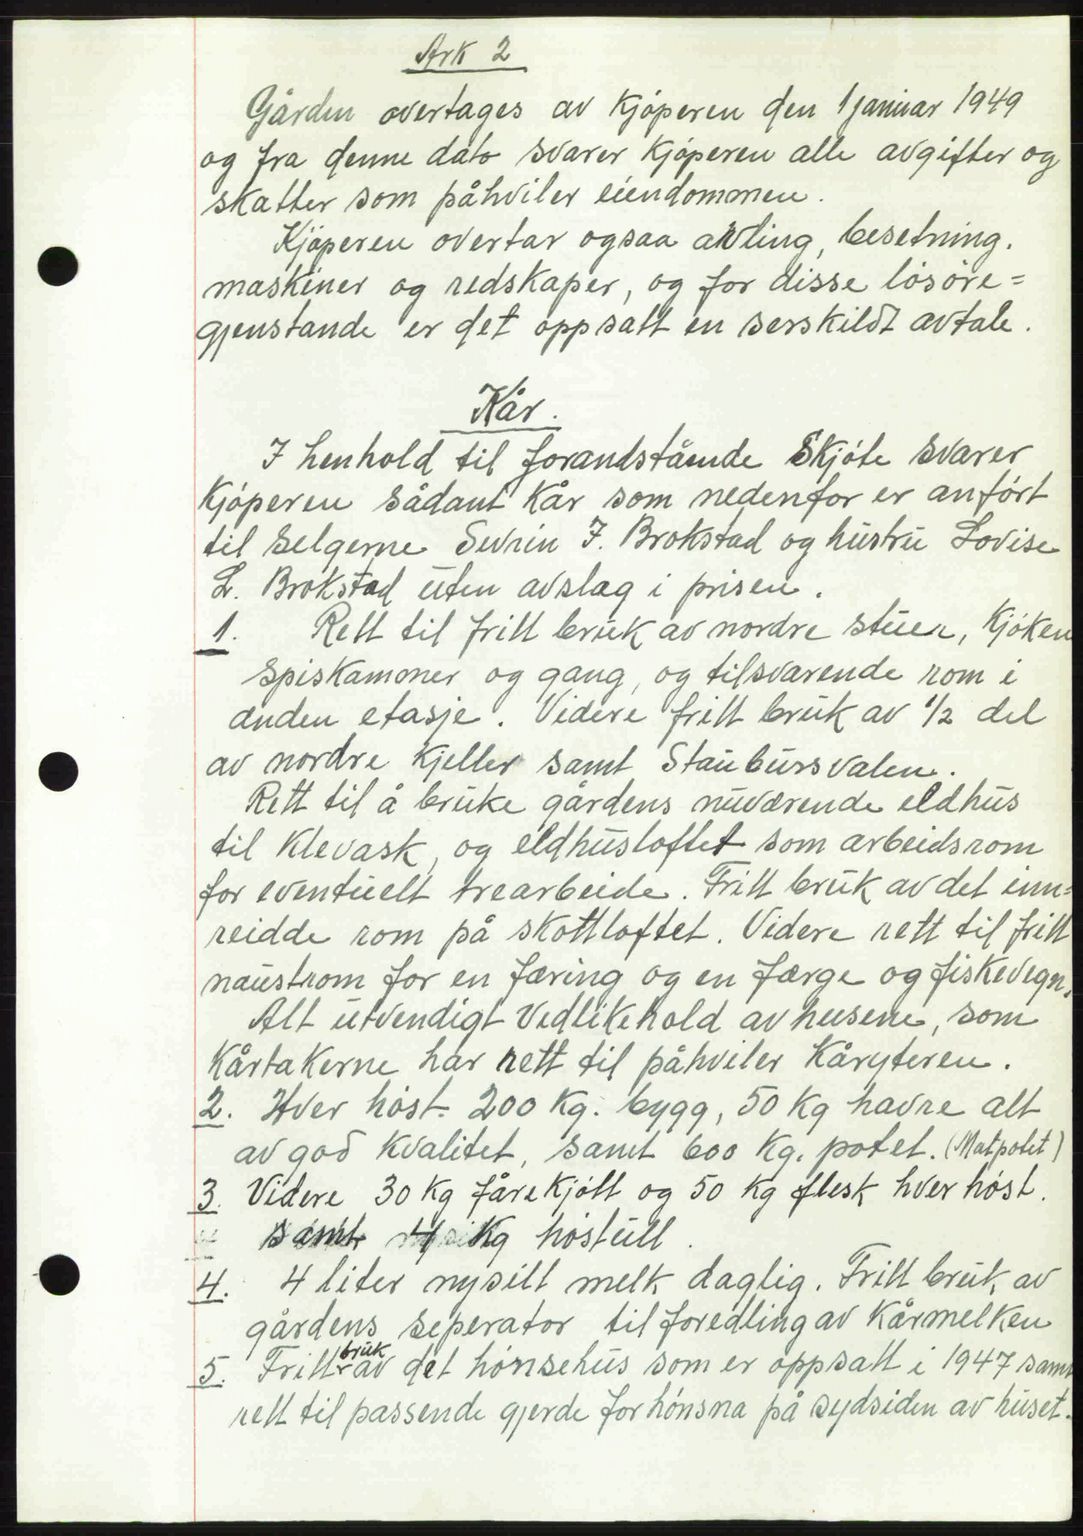 Ark 2
Gården overtages av kjøperen den 1 januar 1949
og fra denne dato svarer kjøperen alle avgifter og
skatter som påhviler eiendommen.
Kjøperen overtar ogsaa avling, besetning.
maskiner og redskaper, og for disse løsøre=
gjenstande er det oppsatt en serskildt avtale.
Kår.
I henhold til forandstående skjøte svarer
kjøperen sådant kår som nedenfor er anført
til selgerne Sevrin J. Brokstad og hustru Lovise
L. Brokstad uten avslag i prisen.
1. Rett til fritt bruk av nordre stuer, kjøken
spiskammer og gang, og tilsvarende rom i
anden etasje. Videre fritt bruk av 1/2 del
av nordre kjeller samt Staubursvalen.
Rett til å bruke gårdens nuværende eldhus
til klevask, og eldhusloftet som arbeidsrom
for eventuelt trearbeide. Fritt bruk av det inn=
reidde rom på skottloftet. Videre rett til fritt
naustrom for en færing og en færge og fiskevegn.
Alt utvendigt vedlikehold av husene, som
kårtakerne har rett til påhviler kåryteren.
2. Hver høst 200 kg. bygg, 50 kg havre alt
av god kvalitet, samt 600 kg. potet. (Matpotet)
3. Videre 30 kg fårekjøtt og 50 kg flesk hver høst.
samt 4 kg høstull.
4. 4 liter nysilt melk daglig. Fritt bruk av
gårdens seperator til foredling av kårmelken
5. Fritt bruk av det hønsehus som er oppsatt i 1947 samt
rett til passende gjerde for hønsna på sydsiden av huset.